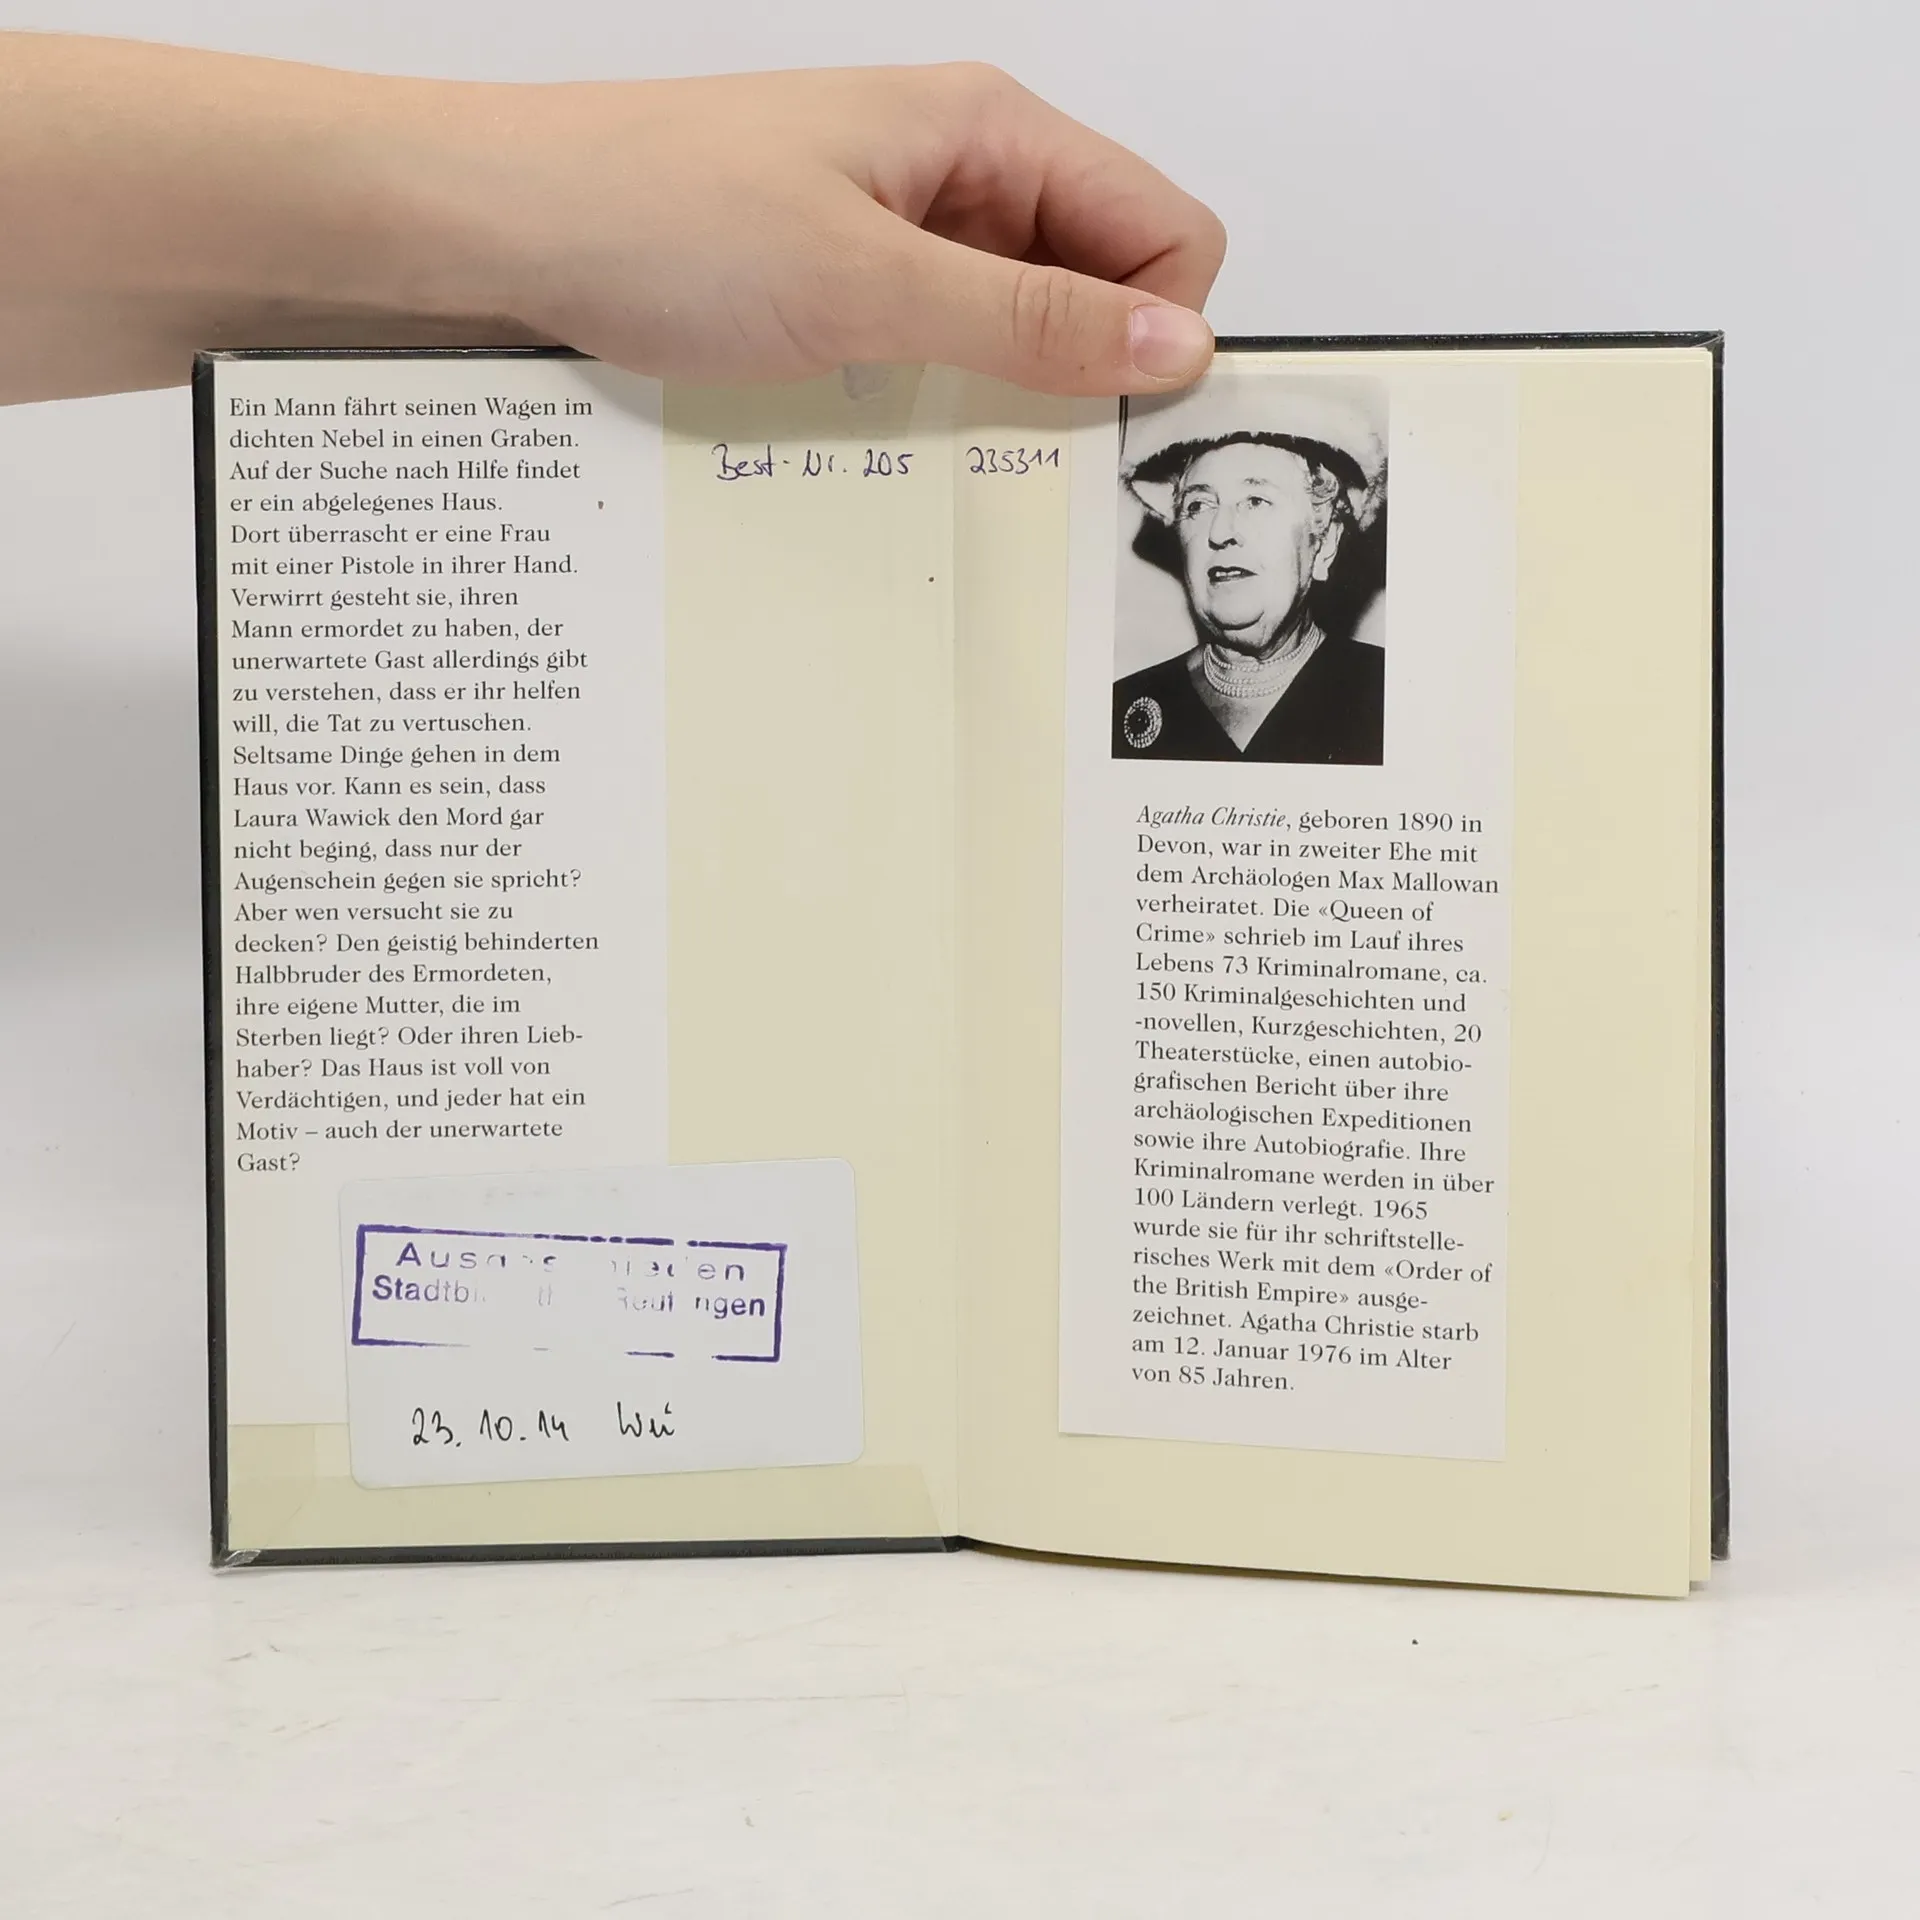 Ein Mann fährt seinen Wagen im
dichten Nebel in einen Graben.
Auf der Suche nach Hilfe findet
er ein abgelegenes Haus.
Dort überrascht er eine Frau
mit einer Pistole in ihrer Hand.
Verwirrt gesteht sie, ihren
Mann ermordet zu haben, der
unerwartete Gast allerdings gibt
zu verstehen, dass er ihr helfen
will, die Tat zu vertuschen.
Seltsame Dinge gehen in dem
Haus vor. Kann es sein, dass
Laura Wawick den Mord gar
nicht beging, dass nur der
Augenschein gegen sie spricht?
Aber wen versucht sie zu
decken? Den geistig behinderten
Halbbruder des Ermordeten,
ihre eigene Mutter, die im
Sterben liegt? Oder ihren Lieb-
haber? Das Haus ist voll von
Verdächtigen, und jeder hat ein
Motiv – auch der unerwartete
Gast?
23.10.14
Best-Nr. 205 235311
Agatha Christie, geboren 1890 in
Devon, war in zweiter Ehe mit
dem Archäologen Max Mallowan
verheiratet. Die «Queen of
Crime» schrieb im Lauf ihres
Lebens 73 Kriminalromane, ca.
150 Kriminalgeschichten und
-novellen, Kurzgeschichten, 20
Theaterstücke, einen autobio-
grafischen Bericht über ihre
archäologischen Expeditionen
sowie ihre Autobiografie. Ihre
Kriminalromane werden in über
100 Ländern verlegt. 1965
wurde sie für ihr schriftstelle-
risches Werk mit dem «Order of
the British Empire» ausge-
zeichnet. Agatha Christie starb
am 12. Januar 1976 im Alter
von 85 Jahren.